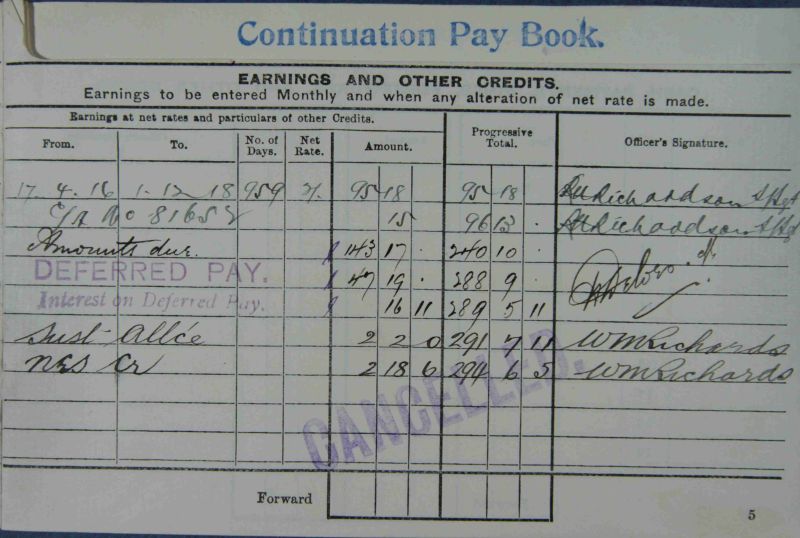 Continuation Pay Book.
EARNINGS AND OTHER CREDITS.
Earnings to be entered Monthly and when any alteration of net rate is made.
Earnings at net rates and particulars of other Credits.
From. To. No. of Days. Net Rate. Amount. Progressive Total. Officer's Signature.
17. 4. 16 1. 12 18 959 2/. 95 18 95 18 Richardson S/Sgt
No 81652 15 96 13 Richardson S/Sgt
Amounts due. £ 143 17 . 240 10 .
DEFERRED PAY. £ 47 19 . 288 9 .
Interest on Deferred Pay. £ 16 11 289 5 11
Sust Allce 2 2 0 291 7 11 WMRichards
Cr 2 18 6 294 6 5 WMRichards
CANCELLED.
Forward
5